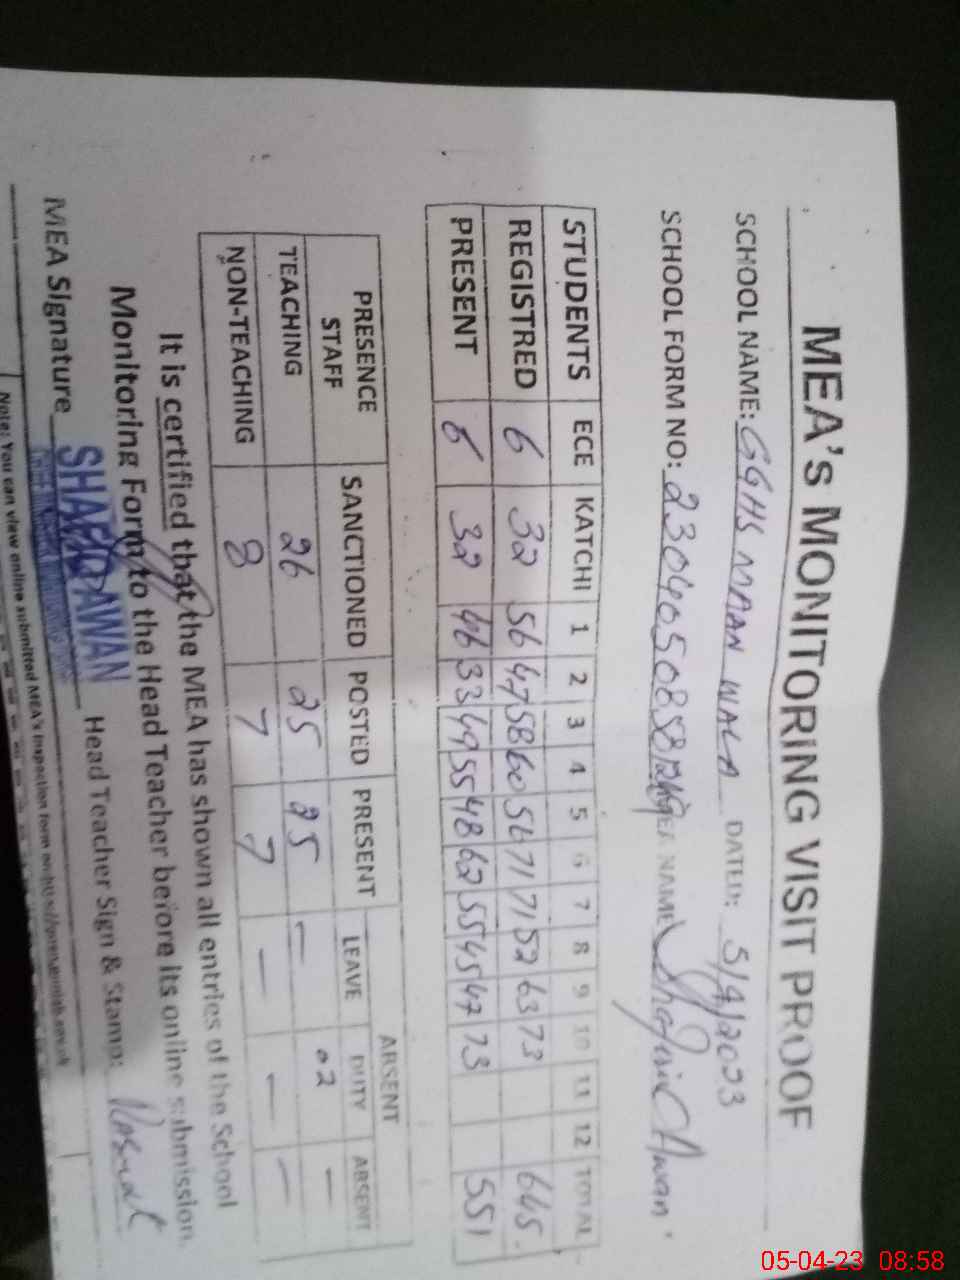 MEA'S MONITORING VISIT PROOF
SCHOOL NAME: GGHS MAAN WALA DATED: 5/4/2023
SCHOOL FORM NO: NAME Shafeeq Awan
STUDENTS ECE KATCHI 1 2 3 4 5 6 7 8 9 10 11 12 TOTAL
REGISTRED 6 32 56 47 58 60 56 71 71 52 63 73 645
PRESENT 6 32 46 33 49 55 48 62 55 45 47 73 551
PRESENCE STAFF SANCTIONED POSTED PRESENT ABSENT
LEAVE DUTY ABSENT
TEACHING 26 25 25 — 02 —
NON-TEACHING 8 7 7 — — —
It is certified that the MEA has shown all entries of the School
Monitoring Form to the Head Teacher before its online submission.
MEA Signature SHAFEEQ AWAN Head Teacher Sign & Stamp:
Note: You can view online submitted MEA's inspection form on
05-04-23 08:58